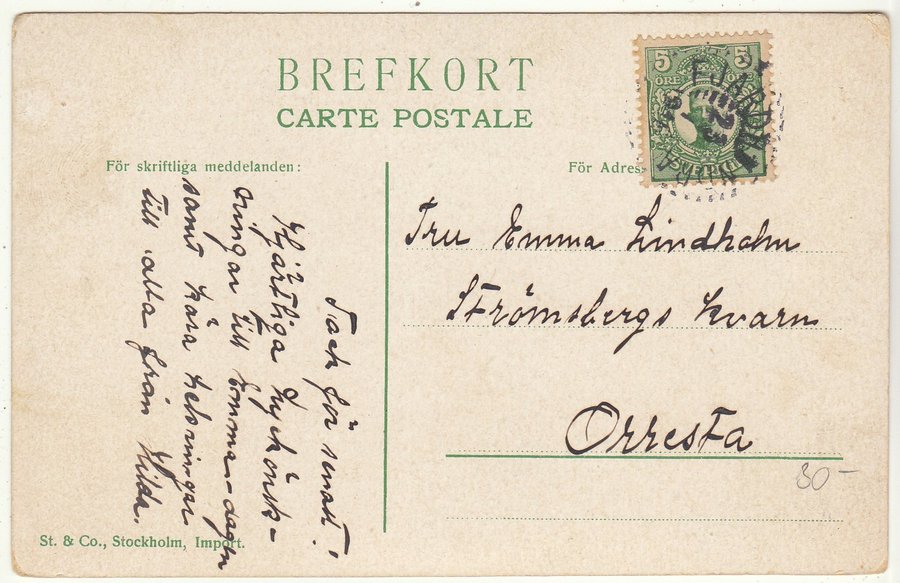 BREFKORT
CARTE POSTALE
För skriftliga meddelanden:
För Adres
5 5
ÖRE
Tack för senast!
Hjärtliga lyckönsk-
ningar till Emma-dagen
samt kära helsningar
till alla från Hilda.
Fru Emma Lindholm
Strömsbergs kvarn
Orresta
30-
St. & Co., Stockholm, Import.